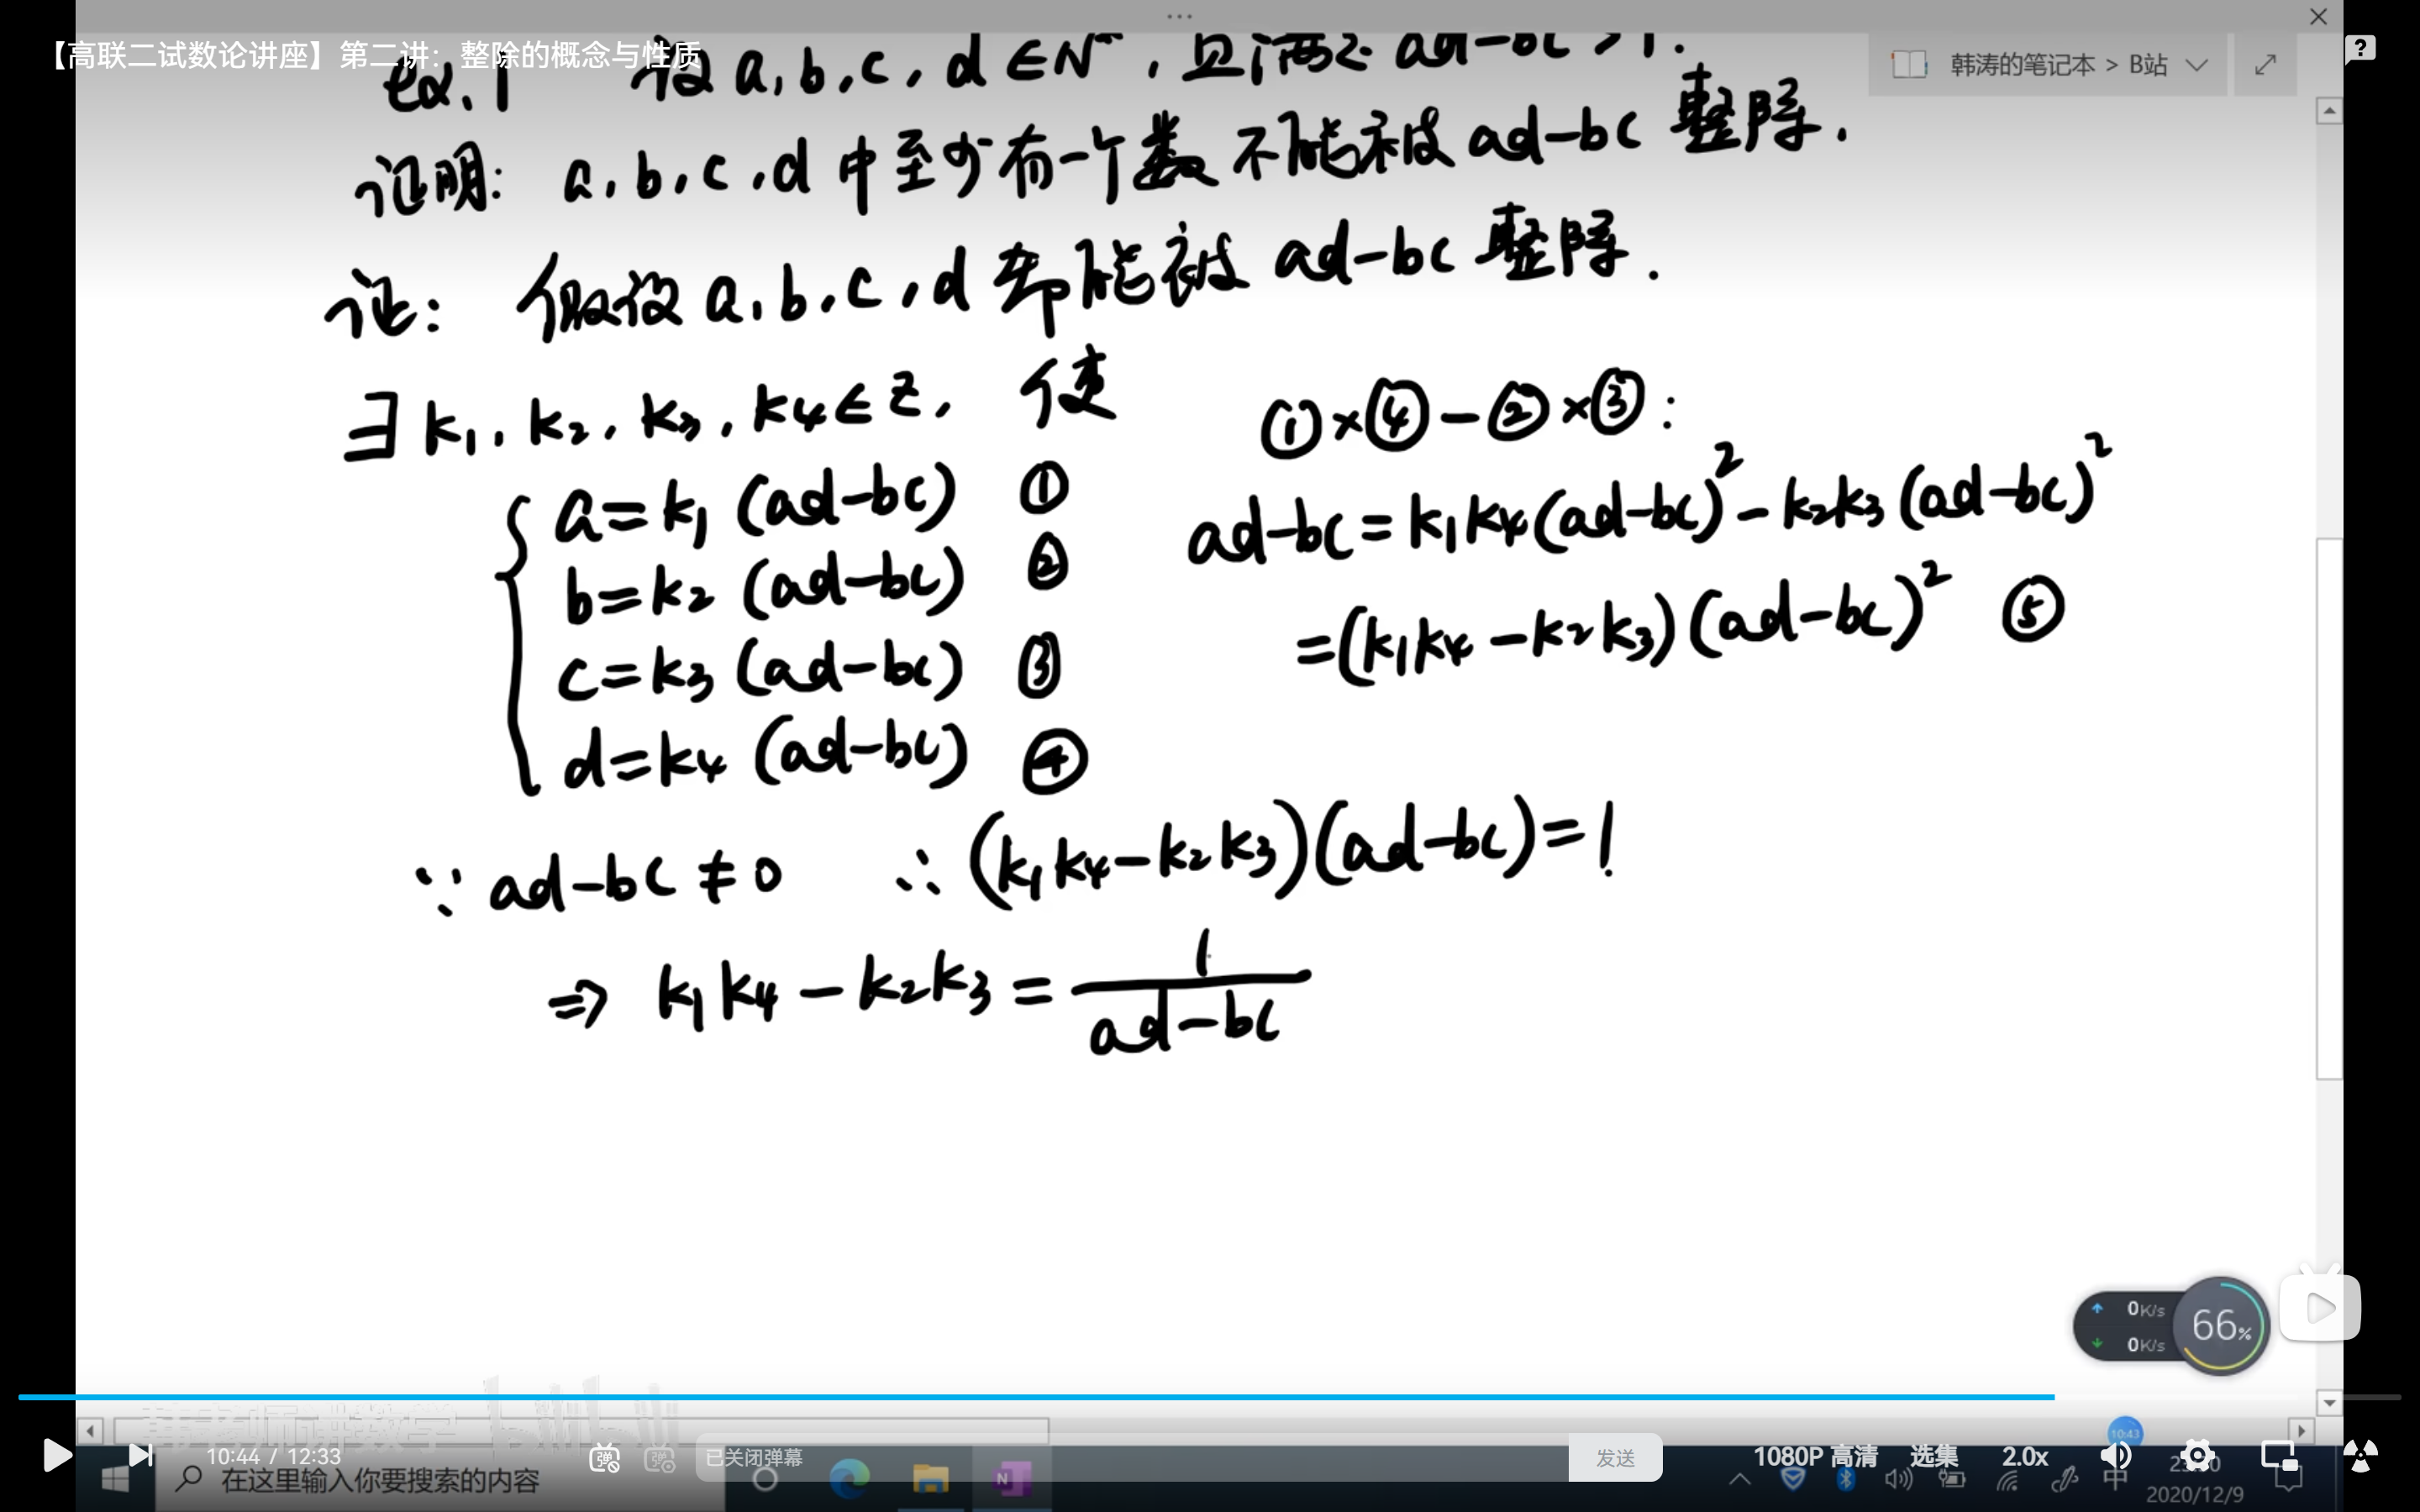 【高联二试数论讲座】第二讲：整除的概念与性质
韩涛的笔记本 > B站
ex.1 设 a,b,c,d∈N*,且满足 ad-bc>1.
证明: a,b,c,d 中至少有一个数不能被 ad-bc 整除.
证: 假设 a,b,c,d 都能被 ad-bc 整除.
∃ k₁, k₂, k₃, k₄∈Z, 使
a=k₁(ad-bc) ①
b=k₂(ad-bc) ②
c=k₃(ad-bc) ③
d=k₄(ad-bc) ④
①×④-②×③:
ad-bc=k₁k₄(ad-bc)²-k₂k₃(ad-bc)²
=(k₁k₄-k₂k₃)(ad-bc)² ⑤
∵ ad-bc≠0 ∴ (k₁k₄-k₂k₃)(ad-bc)=1
⇒ k₁k₄-k₂k₃=1/(ad-bc)
0K/s
0K/s
66%
10:43
10:44 / 12:33
弹
弹
已关闭弹幕
发送
1080P 高清
选集
2.0x
在这里输入你要搜索的内容
N
中
2020/12/9